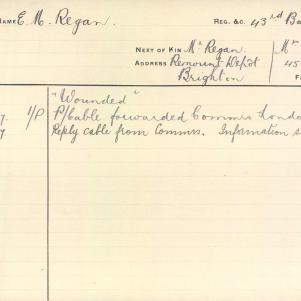 NAME E. M. Regan. REG. &C. 43rd Ba
NEXT OF KIN Mr Regan. Mr
ADDRESS Remount Depôt 45
Brighton F
"Wounded"
7. 1/P P/Cable forwarded Commrs Londo
7. Reply cable from Commrs. Information s